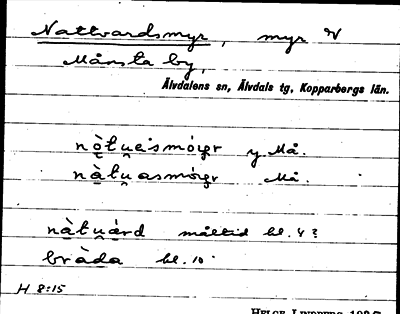 Nattvardsmyr, myr V
Månsta by,
Älvdalens sn, Älvdals tg, Kopparbergs län.
nò̱tu̯ásmó̱yr y Må.
nà̱tu̯asmó̱yr Må.
nà̱tu̯árd måltid bl. 4?
brà̱da bl. 10
H 8:15
HELGE LINDBERG 1935